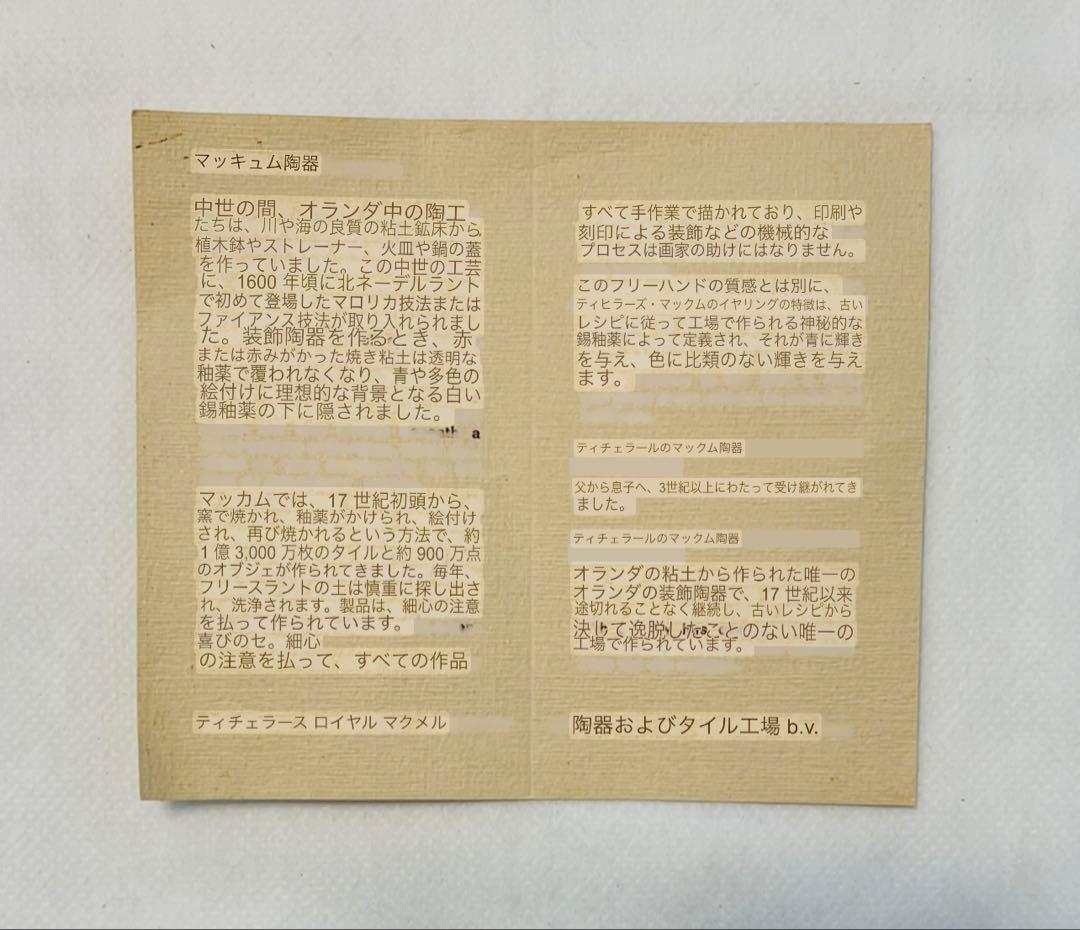 マッキュム陶器
中世の間、オランダ中の陶工
たちは、川や海の良質の粘土鉱床から
植木鉢やストレーナー、火皿や鍋の蓋
を作っていました。この中世の工芸
に、1600 年頃に北ネーデルラント
で初めて登場したマロリカ技法または
ファイアンス技法が取り入れられまし
た。装飾陶器を作るとき、赤
または赤みがかった焼き粘土は透明な
釉薬で覆われなくなり、青や多色の
絵付けに理想的な背景となる白い
錫釉薬の下に隠されました。
a
マッカムでは、17 世紀初頭から、
窯で焼かれ、釉薬がかけられ、絵付け
され、再び焼かれるという方法で、約
1 億 3,000 万枚のタイルと約 900 万点
のオブジェが作られてきました。毎年、
フリースラントの土は慎重に探し出さ
れ、洗浄されます。製品は、細心の注意
を払って作られています。
喜びのセ。細心
の注意を払って、すべての作品
ティチェラース ロイヤル マクメル
すべて手作業で描かれており、印刷や
刻印による装飾などの機械的な
プロセスは画家の助けにはなりません。
このフリーハンドの質感とは別に、
ティヒラーズ・マックムのイヤリングの特徴は、古い
レシピに従って工場で作られる神秘的な
錫釉薬によって定義され、それが青に輝き
を与え、色に比類のない輝きを与え
ます。
ティチェラールのマックム陶器
父から息子へ、3世紀以上にわたって受け継がれてき
ました。
ティチェラールのマックム陶器
オランダの粘土から作られた唯一の
オランダの装飾陶器で、17 世紀以来
途切れることなく継続し、古いレシピから
決して逸脱したことのない唯一の
工場で作られています。
陶器およびタイル工場 b.v.